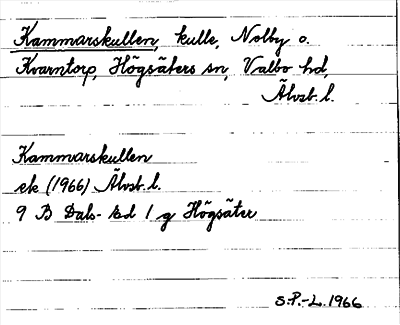 Kammarskullen, kulle, Nolby o.
Kvarntorp, Högsäters sn, Valbo hd,
Älvsb. l.
Kammarskullen
ek (1966) Älvsb. l.
9 B Dals- Ed 1 g Högsäter
S.P.-L. 1966